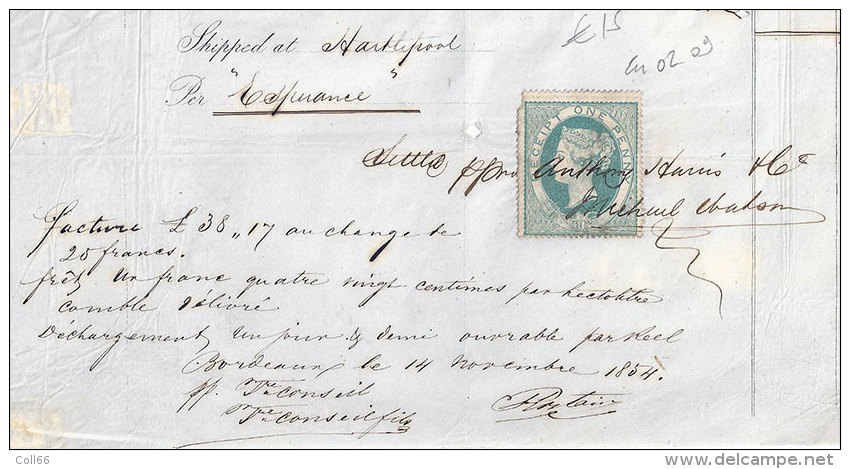 £15
en 02 09
Shipped at Hartlepool
Per "Espérance"
RECEIPT ONE PENNY
Settld ppro Anthony Harris & Co
Michael Watson
facture £ 38 „ 17 au change de
25 francs.
frêt un franc quatre vingt centimes par hectolitre
comble délivré
Déchargement un jour & demi ouvrable par Keel
Bordeaux le 14 Novembre 1854.
pp. Ve Conseil
Ve Conseil fils
Coll66
www.delcampe.net